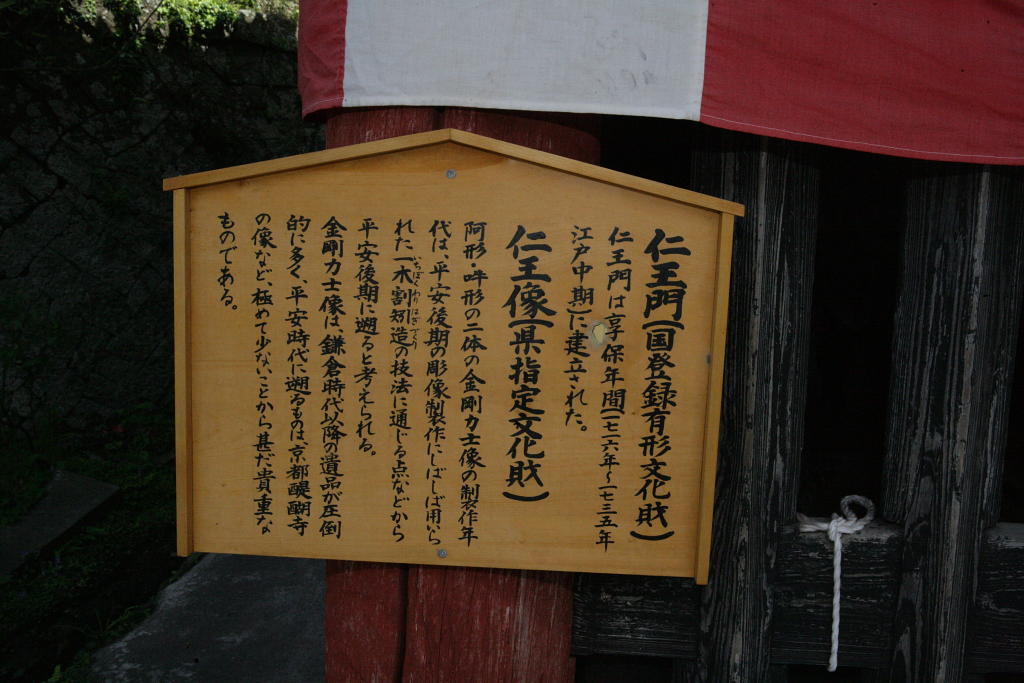 仁王門(国登録有形文化財)
仁王門は享保年間(一七一六年～一七三五年
江戸中期)に建立された。
仁王像(県指定文化財)
阿形・吽形の二体の金剛力士像の製作年
代は、平安後期の彫像製作にしばしば用いら
れた一木割矧造の技法に通じる点などから
いちぼくわりはぎづくり
平安後期に遡ると考えられる。
金剛力士像は、鎌倉時代以降の遺品が圧倒
的に多く、平安時代に遡るものは、京都醍醐寺
の像など、極めて少ないことから甚だ貴重な
ものである。